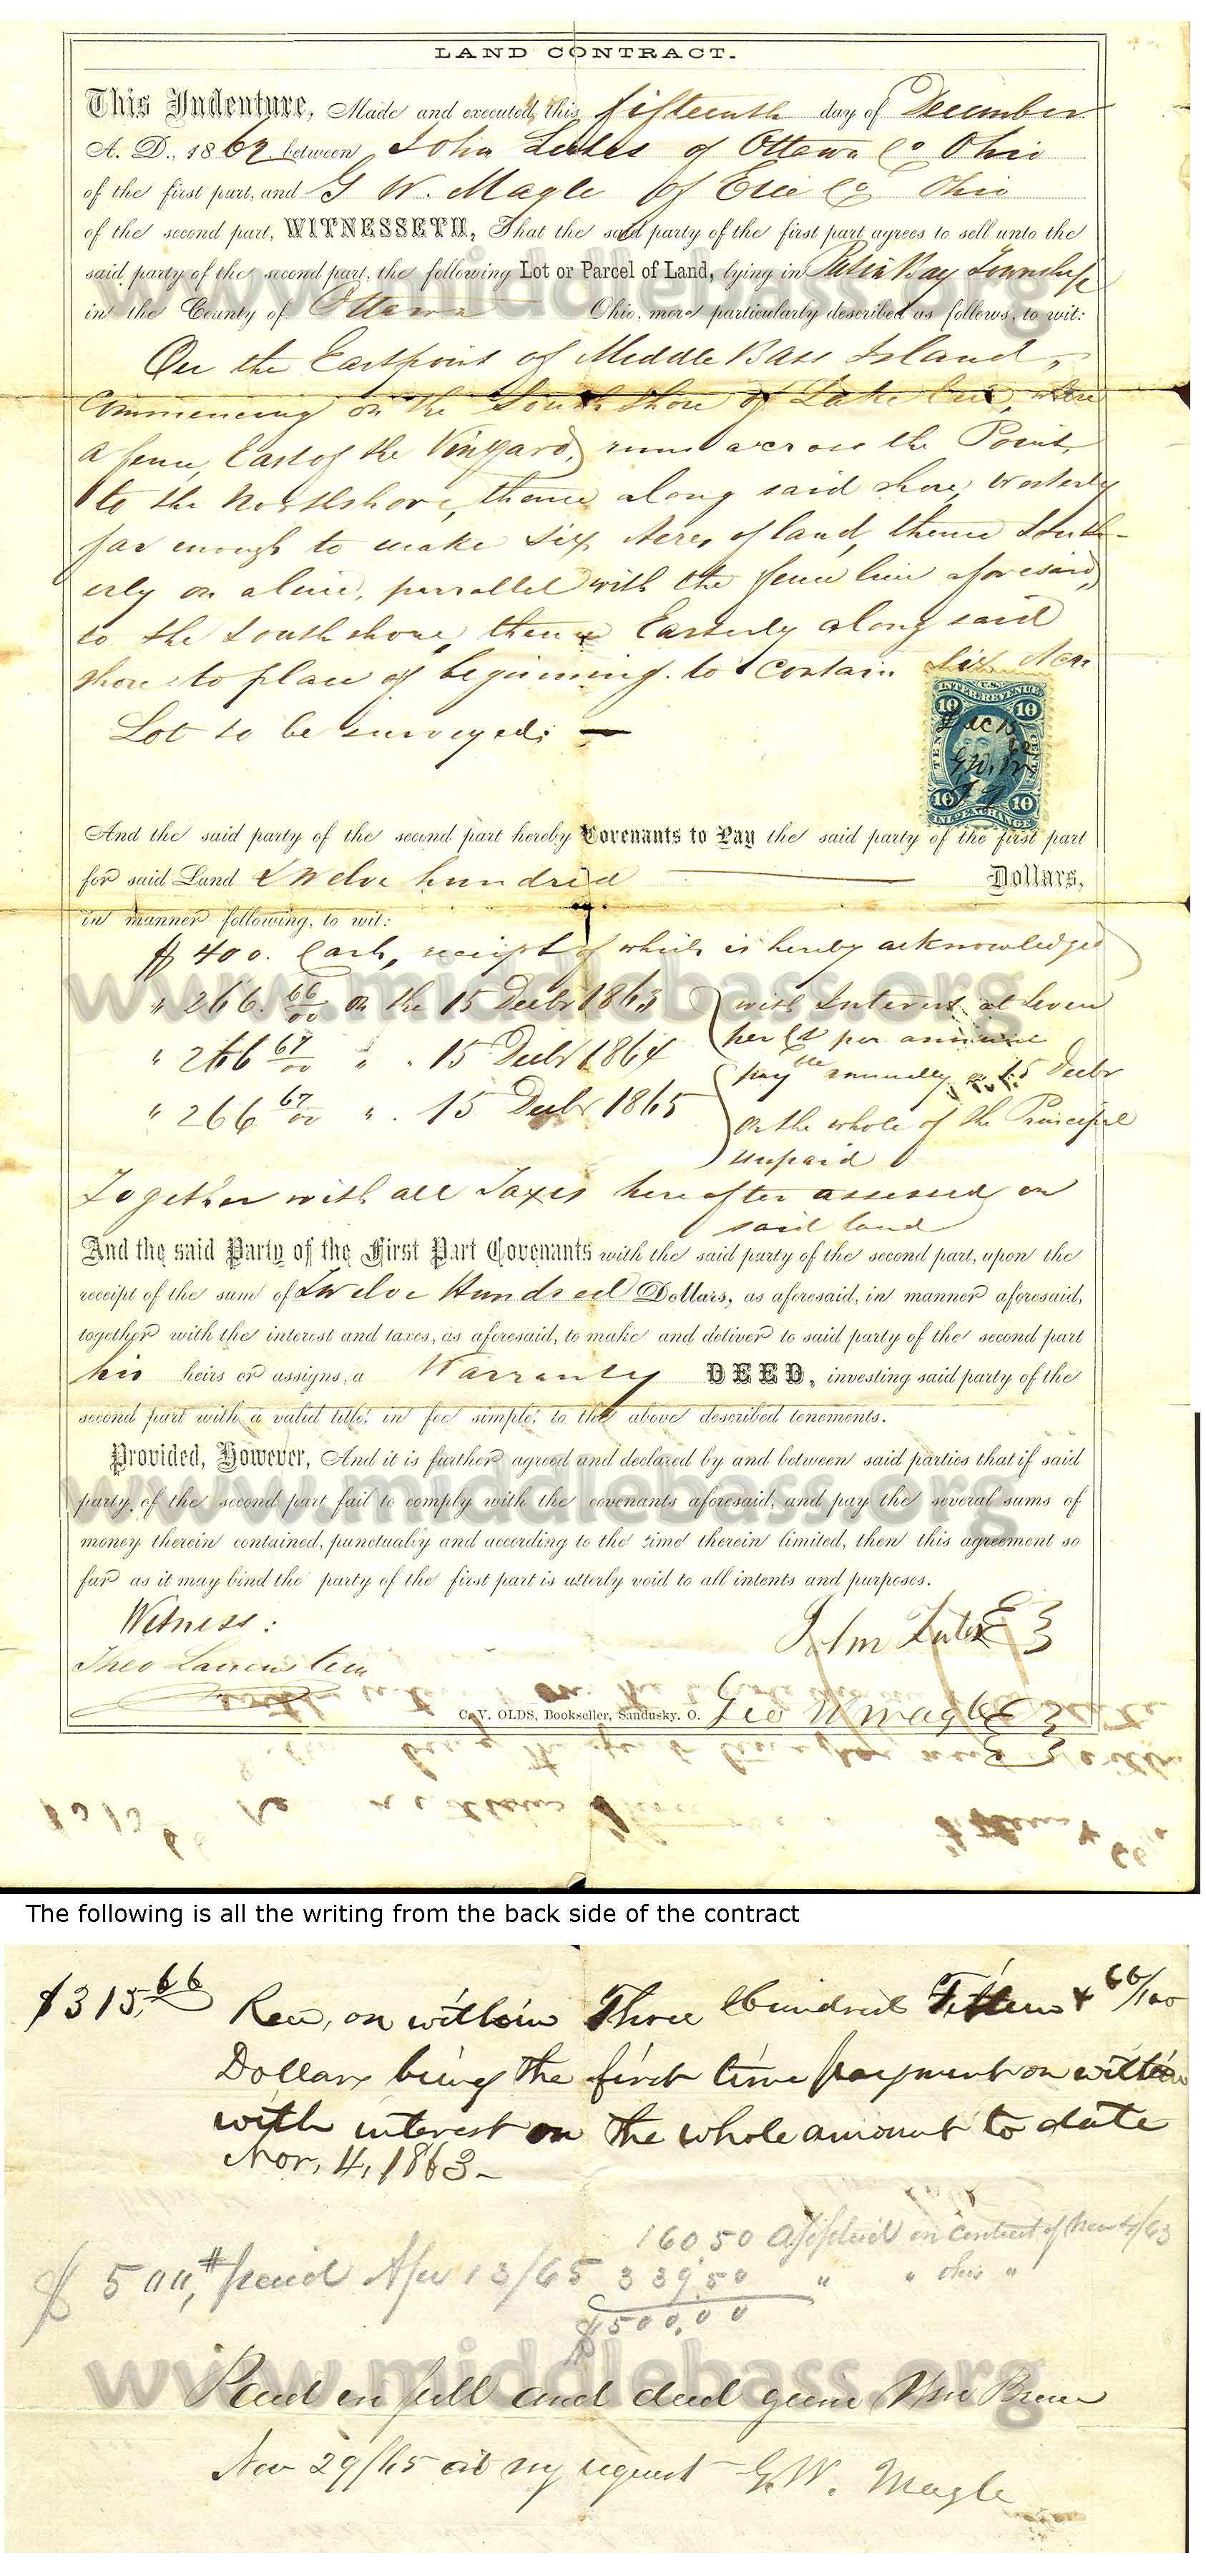 LAND CONTRACT.
This Indenture, Made and executed this fifteenth day of December
A. D., 1862 between John Lutes of Ottawa Co Ohio
of the first part, and G W. Magle of Erie Co Ohio
of the second part, WITNESSETH, That the said party of the first part agrees to sell unto the
said party of the second part, the following Lot or Parcel of Land, lying in Put in Bay Township
www.middlebass.org
in the County of Ottawa Ohio, more particularly described as follows, to wit:
On the Eastpoint of Middle Bass Island,
Commencing on the South shore of Lake Erie, where
a fence, East of the Vineyard, runs across the Point,
to the Northshore, thence along said shore, westerly
far enough to make six Acres of land, thence South-
erly on a line, parrallel with the fence line aforesaid,
to the Southshore, thence Easterly along said
shore to place of beginning. to contain six Acres
Lot to be surveyed; —
U.S.
INTER. REVENUE
10 10
TEN CENTS
Dec 15
62
G.W.M
10 10
INL. EXCHANGE
And the said party of the second part hereby Covenants to Pay the said party of the first part
for said Land Twelve hundred Dollars,
in manner following, to wit:
$ 400. Cash, receipt of which is hereby acknowledged
www.middlebass.org
" 266. 66/00 on the 15 Decbr 1863
" 266 67/00 " " 15 Decbr 1864
" 266 67/00 " . 15 Decbr 1865
with Interest at Seven
per Ct per annum
payble annually on 15 Decbr
on the whole of the Principal
unpaid
Together with all Taxes hereafter assessed on
said land
And the said Party of the First Part Covenants with the said party of the second part, upon the
receipt of the sum of Twelve Hundred Dollars, as aforesaid, in manner aforesaid,
together with the interest and taxes, as aforesaid, to make and deliver to said party of the second part
his heirs or assigns, a Warranty DEED, investing said party of the
second part with a valid title, in fee simple, to the above described tenements.
Provided, However, And it is further agreed and declared by and between said parties that if said
www.middlebass.org
party of the second part fail to comply with the covenants aforesaid, and pay the several sums of
money therein contained, punctually and according to the time therein limited, then this agreement so
far as it may bind the party of the first part is utterly void to all intents and purposes.
Witness:
John Lutes
Theo
C. V. OLDS, Bookseller, Sandusky, O.
Geo W Magle
The following is all the writing from the back side of the contract
$315.66 Recd, on within Three Hundred Fifteen & 66/100
Dollars being the first time payment on within
with interest on the whole amount to date
Nov, 4, 1863-
160 50 Applied on contract of Nov /63
$ 500, paid Apr 13/65 339.50 " " this "
$500.00
www.middlebass.org
Paid in full and deed given Wm
Nov 29/65 at my request G. W. Magle